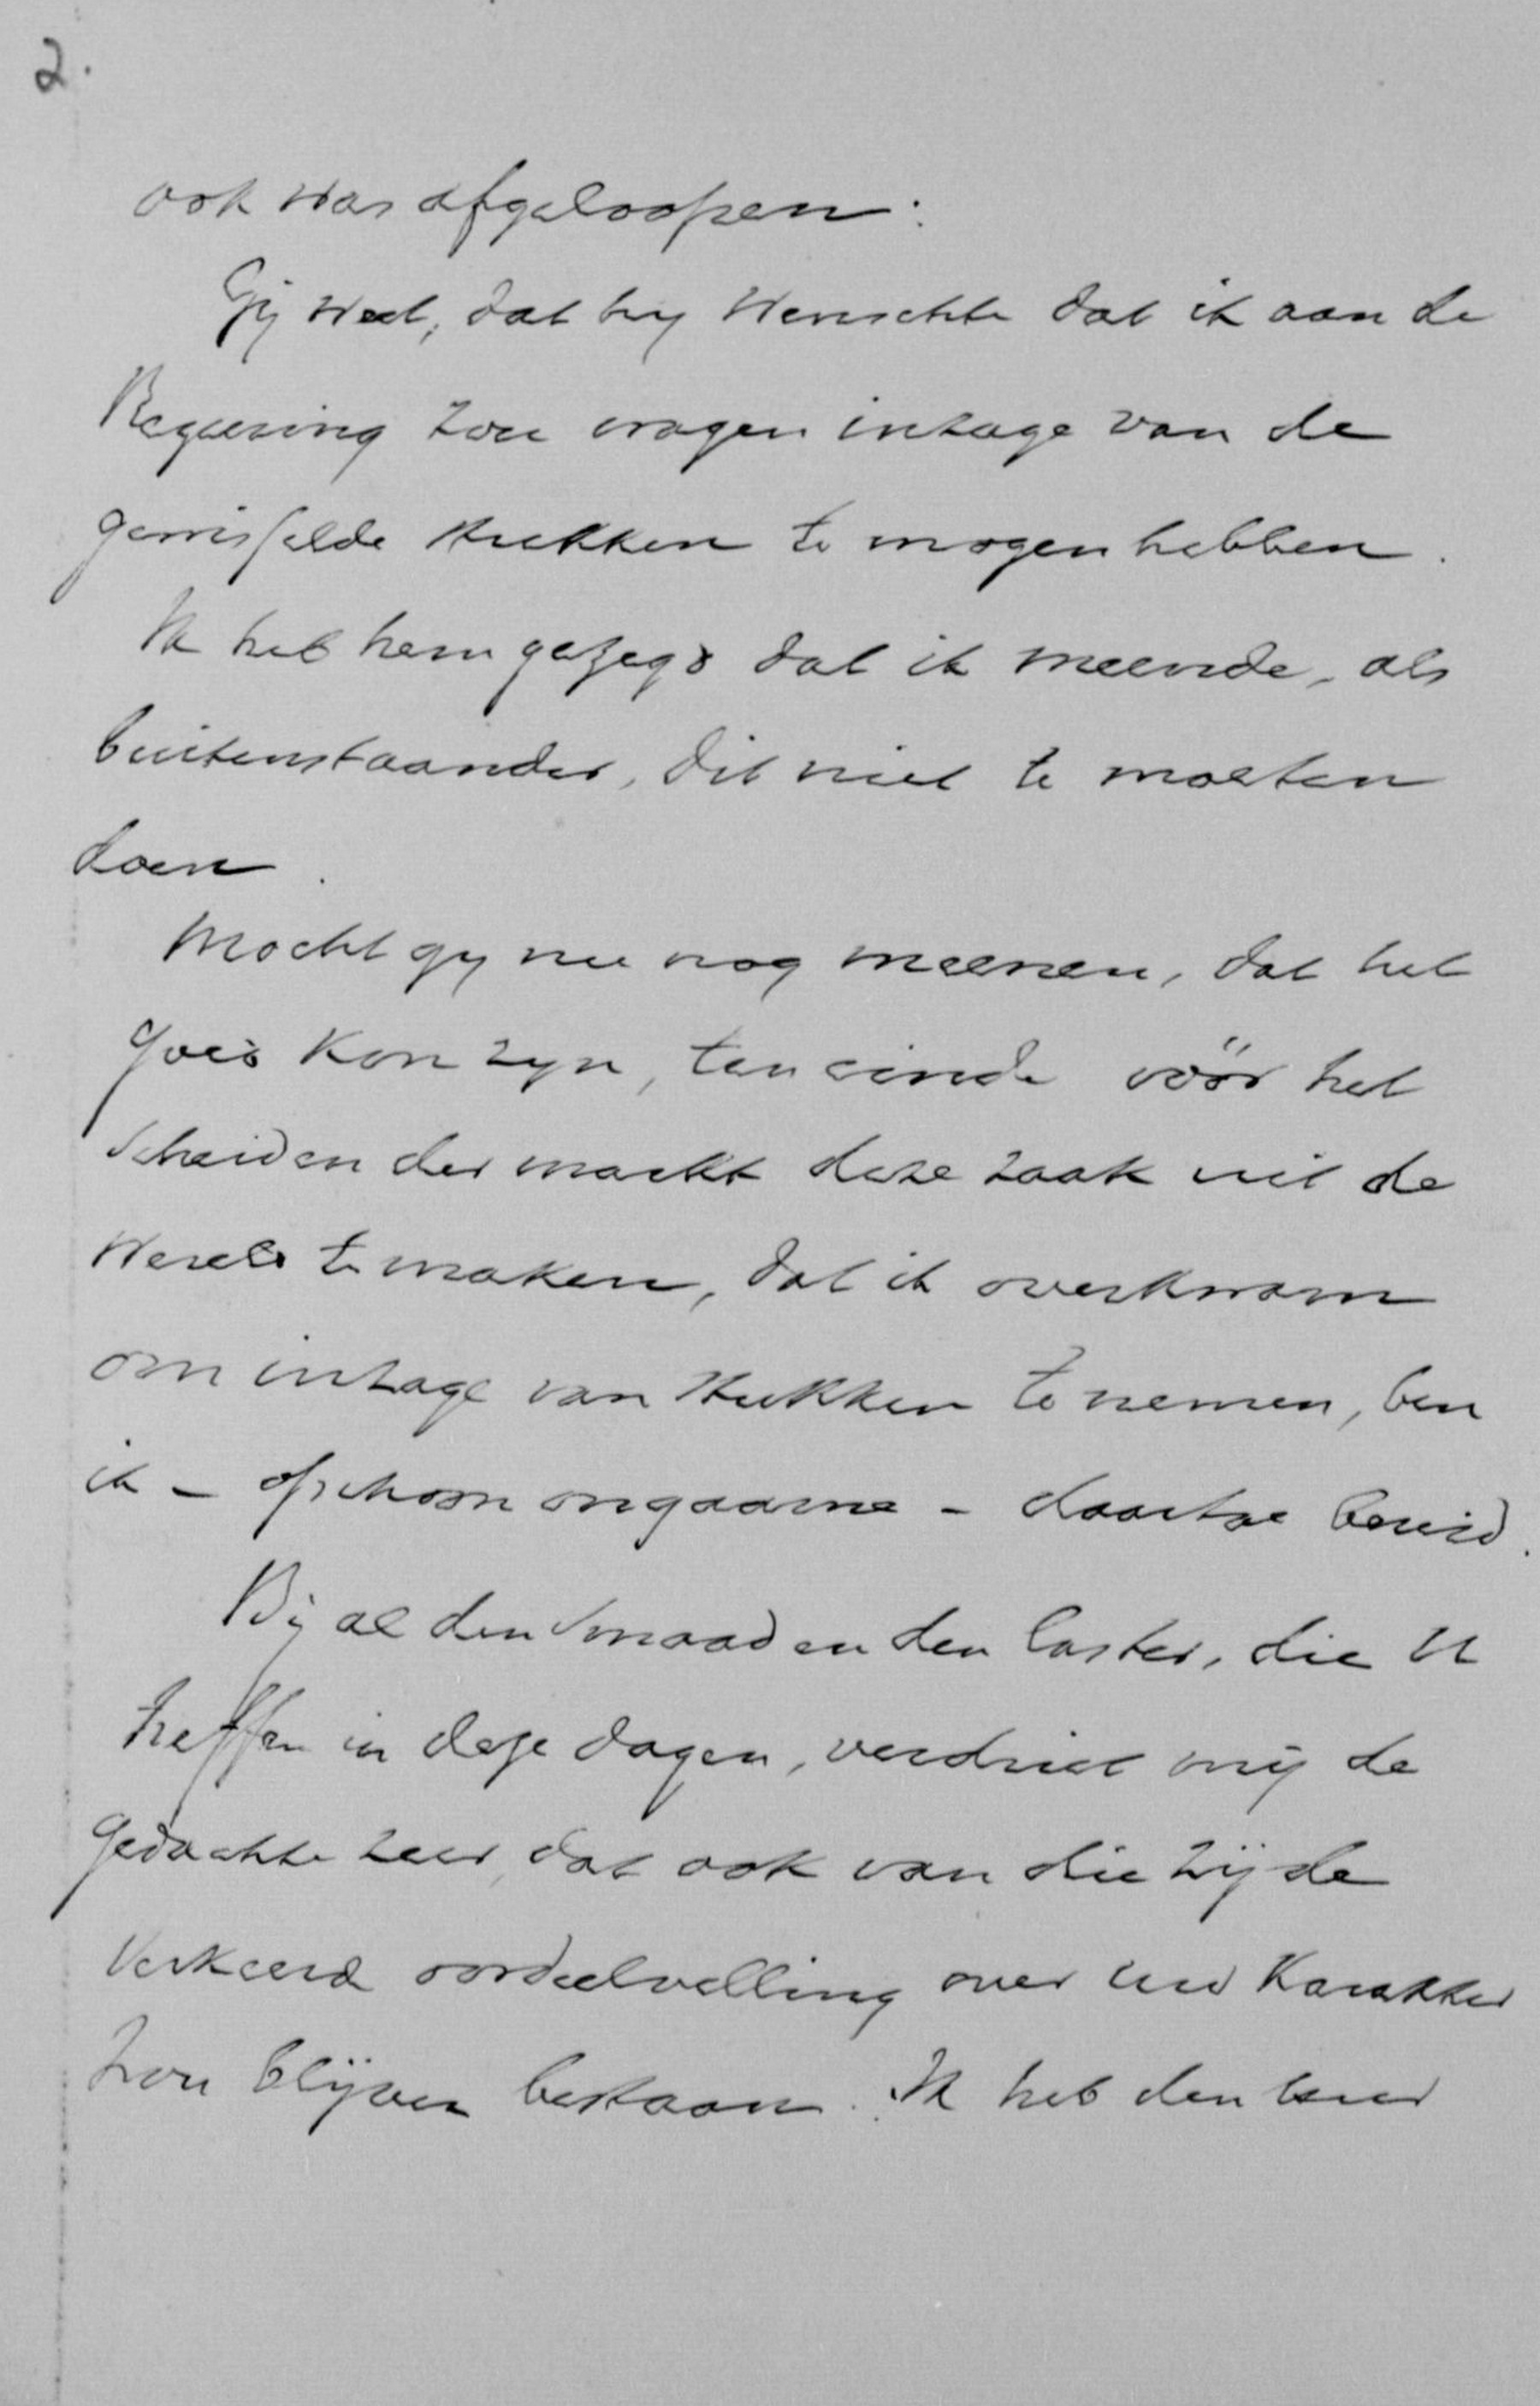 2.
ook was afgeloopen.
Gij weet, dat hij wenschte dat ik aan de
Regeering zou vragen inzage van de
gewisselde stukken te mogen hebben.
Ik heb hem gezegd dat ik meende, als
buitenstaander, dit niet te moeten
doen.
Mocht gij nu nog meenen, dat het
goed kon zijn, ten einde vóór het
scheiden der markt deze zaak uit de
wereld te maken, dat ik overkwam
om inzage van stukken te nemen, ben
ik - ofschoon ongaarne - daartoe bereid.
Bij al den smaad en den laster, die U
treffen in deze dagen, verdriet mij de
gedachte zeer, dat ook van die zijde
verkeerd oordeelvelling over uw karakter
zou blijven bestaan. Ik heb den heer